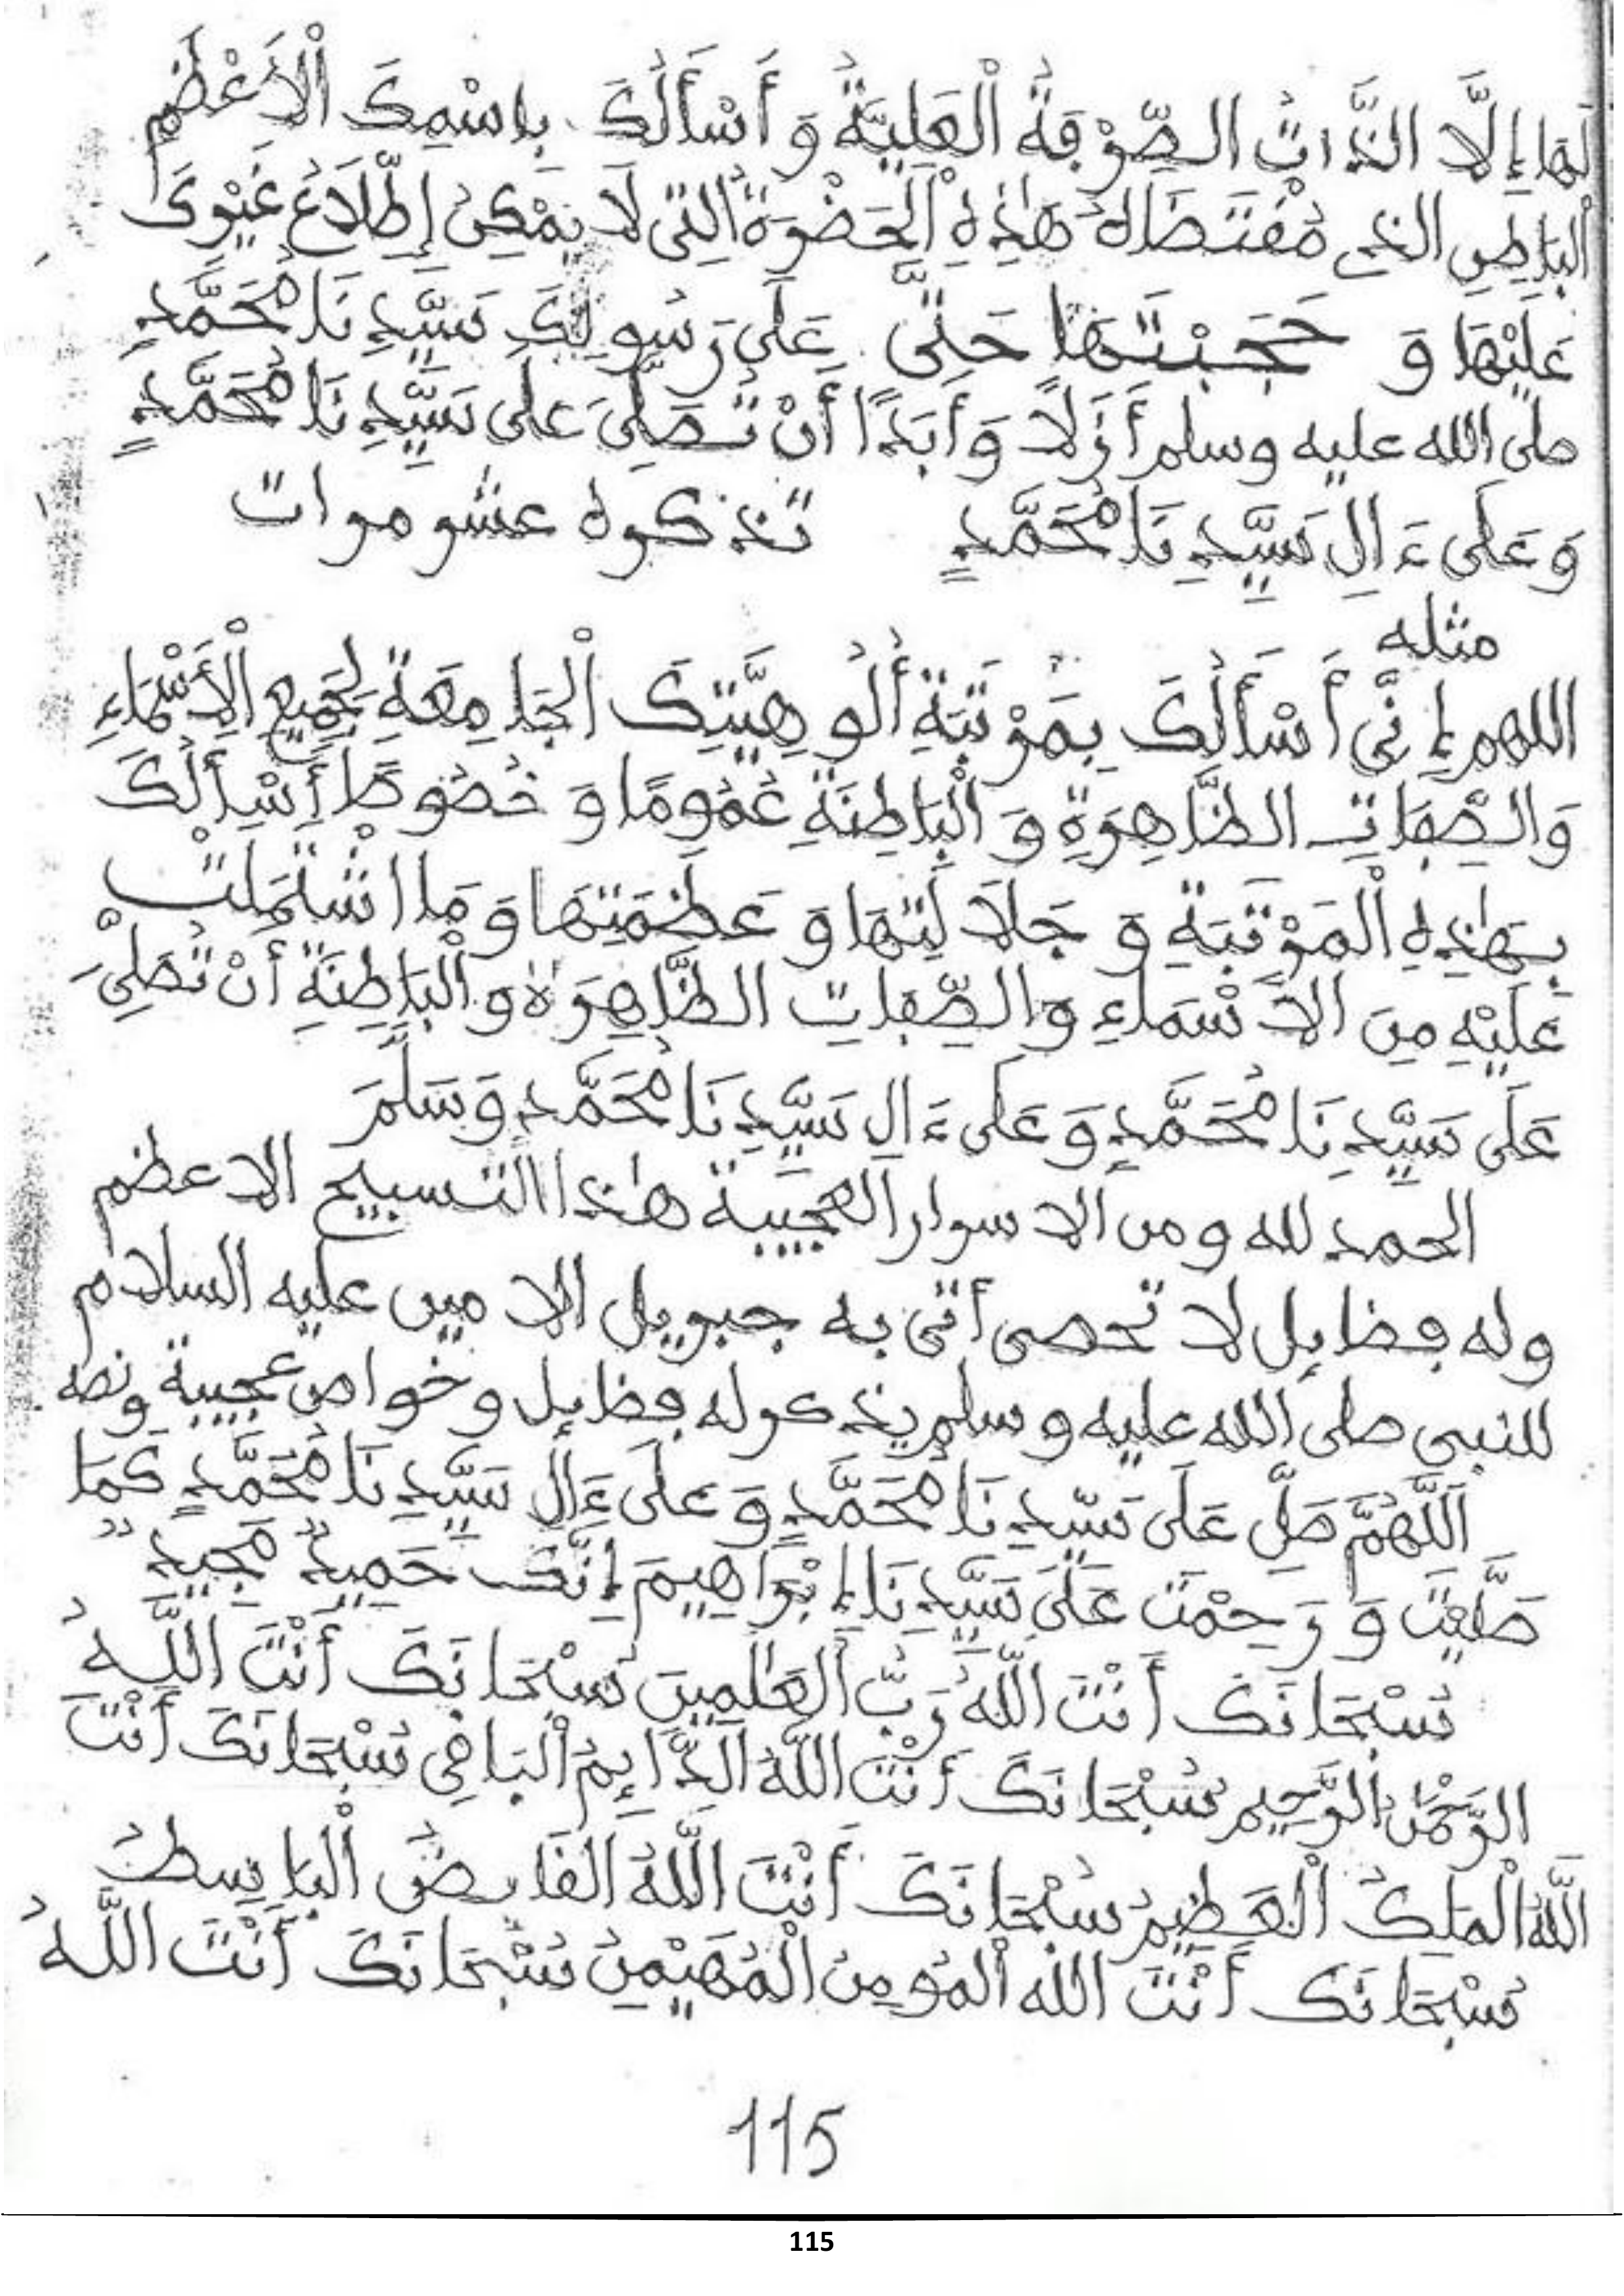 لَهَا إِلَّا الذَّاتُ الصِّرْفَةُ الْعَلِيَّةُ وَ أَسْأَلُكَ بِاسْمِكَ الْأَعْظَمِ
الْبَاطِنِ الذي مُقْتَضَاهُ هَٰذِهِ الْحَضْرَةُ التِي لَا يُمْكِنُ إِطِّلَاعُ غَيْرِكَ
عَلَيْهَا وَ حَجَبْتَهَا حَتَّى عَلَى رَسُولِكَ سَيِّدِنَا مُحَمَّدٍ
صلى الله عليه وسلم أَزَلًا وَ أَبَدًا أَنْ تُصَلِّيَ عَلَى سَيِّدِنَا مُحَمَّدٍ
وَ عَلَى ءَالِ سَيِّدِنَا مُحَمَّدٍ تذكره عشر مرات
مثله
اللهم إِنِّي أَسْأَلُكَ بِمَرْتَبَةِ أُلُوهِيَّتِكَ الْجَامِعَةِ لِجَمِيعِ الْأَسْمَاءِ
وَالصِّفَاتِ الظَّاهِرَةِ وَ الْبَاطِنَةِ عُمُومًا وَ خُصُوصًا أَسْأَلُكَ
بِهَٰذِهِ الْمَرْتَبَةِ وَ جَلَالَتِهَا وَ عَظَمَتِهَا وَ مَا اشْتَمَلَتْ
عَلَيْهِ مِنَ الْأَسْمَاءِ وَالصِّفَاتِ الظَّاهِرَةِ وَ الْبَاطِنَةِ أَنْ تُصَلِّيَ
عَلَى سَيِّدِنَا مُحَمَّدٍ وَ عَلَى ءَالِ سَيِّدِنَا مُحَمَّدٍ وَسَلِّمَ
الحمد لله و من الاسرار العجيبة هٰذا التسبيح الاعظم
وله فضايل لا تحصى أتى به جبريل الامين عليه السلام
للنبي صلى الله عليه وسلم يذكر له فضايل و خواص عجيبة ونصه
اَللَّهُمَّ صَلِّ عَلَى سَيِّدِنَا مُحَمَّدٍ وَ عَلَى ءَالِ سَيِّدِنَا مُحَمَّدٍ كَمَا
صَلَّيْتَ وَ رَحِمْتَ عَلَى سَيِّدِنَا إِبْرَاهِيمَ إِنَّكَ حَمِيدٌ مَجِيدٌ
سُبْحَانَكَ أَنْتَ اللَّهُ رَبُّ الْعَٰلَمِينَ سُبْحَانَكَ أَنْتَ اللَّهُ
الرَّحْمَٰنُ الرَّحِيم سُبْحَانَكَ أَنْتَ اللَّهُ الدَّايِمُ الْبَاقِي سُبْحَانَكَ أَنْتَ
اللَّهُ الْمَلِكُ الْعَظِيمُ سُبْحَانَكَ أَنْتَ اللَّهُ الْقَابِضُ الْبَاسِطُ
سُبْحَانَكَ أَنْتَ الله الْمُومِنُ الْمُهَيْمِنُ سُبْحَانَكَ أَنْتَ اللَّهُ
115
115